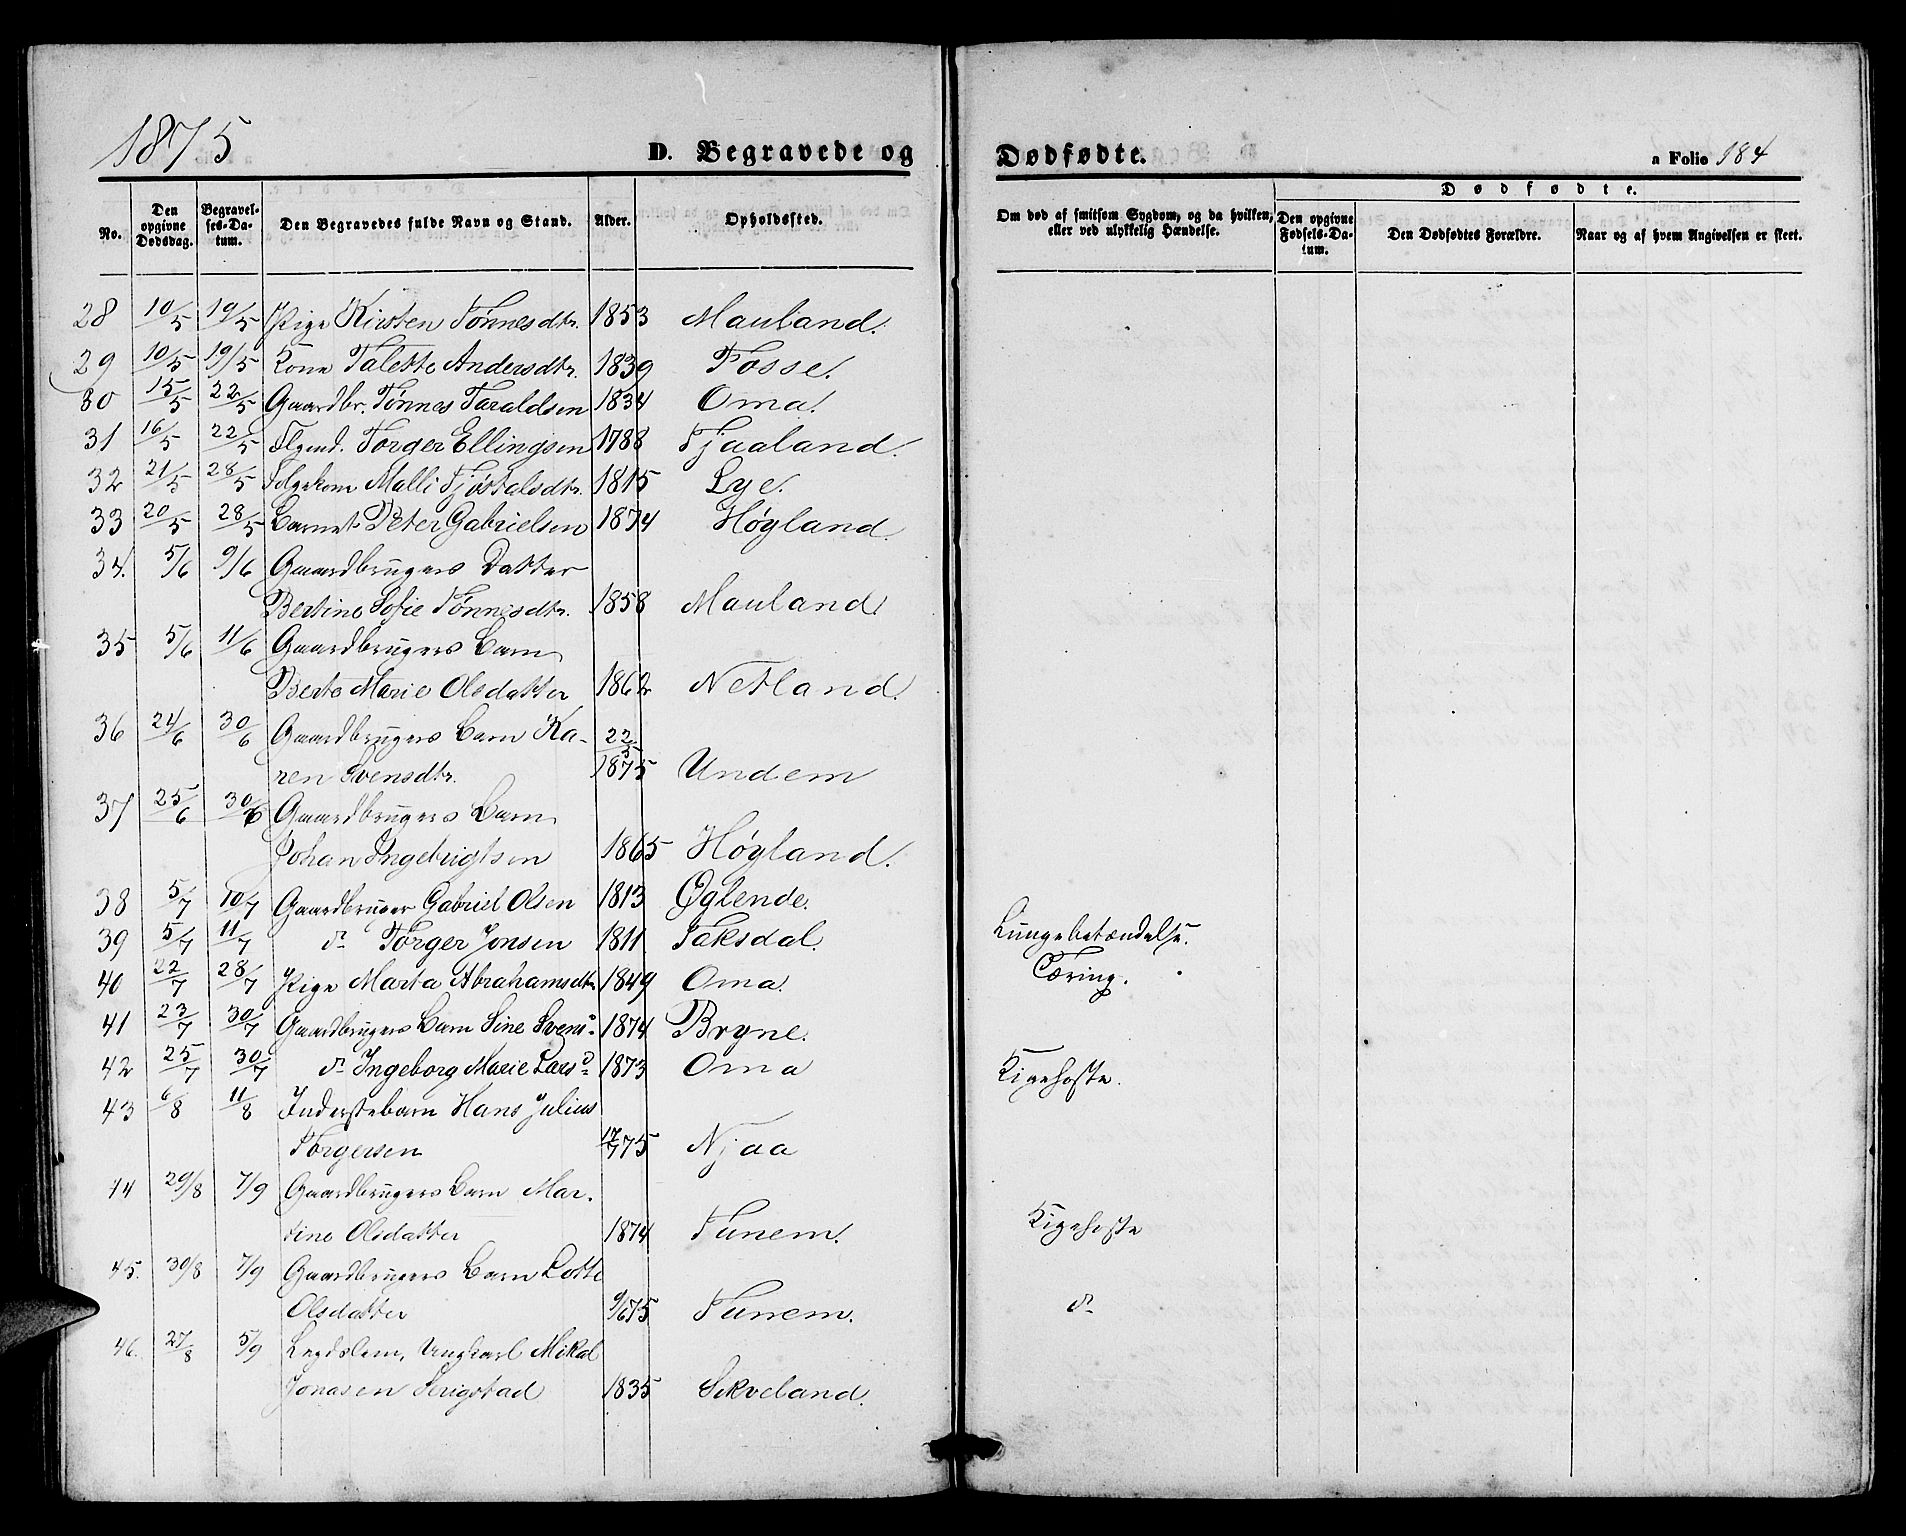 1875
D. Begravede og Dødfødte.
a Folio 184
Dødfødte.
No.
Den opgivne Dødsdag.
Begravelses-Datum.
Den Begravedes fulde Navn og Stand.
Alder.
Opholdssted.
Om død af smitsom Sygdom, og da hvilken, eller ved ulykkelig Hændelse.
Den opgivne Fødsels-Datum.
Den Dødfødtes Forældre.
Naar og af hvem Angivelsen er skeet.
28 10/5 19/5 Pige Kirsten Tønnesdtr. 1853 Mauland.
29 10/5 19/5 Kone Talette Andersdtr. 1839 Fosse.
30 15/5 22/5 Gaardbr. Tønnes Taraldsen 1834 Oma.
31 16/5 22/5 Flgmd. Torger Ellingsen 1788 Tjaaland.
32 21/5 28/5 Folgekone Malli Fjøstalsdtr. 1815 Lye.
33 20/5 28/5 Barnet Peter Gabrielsen 1874 Høgland
34. 5/6 9/6 Gaardbrugers Datter
Bertine Sofie Tønnesdtr. 1858 Mauland
35 5/6 11/6 Gaardbrugers Barn
Berte Marie Olsdatter 1862 Netland.
36 24/6 30/6 Gaardbrugers Barn Ka-
ren Svensdtr. 22/5 1875 Undem
37 25/6 30/6 Gaardbrugers Barn
Johan Ingebrigtsen 1865 Høgland.
38 5/7 10/7 Gaardbruger Gabriel Olsen 1813 Øglende.
39 5/7 11/7 do Torger Jonsen 1811 Taksdal. Lungebetændelse.
40 22/7 28/7 Pige Marta Abrahamsdtr 1849 Oma. Tæring.
41 23/7 30/7 Gaardbrugers Barn Sine Svens d. 1874 Bryne.
42 25/7 30/7 do Ingeborg Marie Lars d. 1873 Oma Kigehoste.
43 6/8 11/8 Inderstebarn Hans Julius
Torgersen 17/7 75 Njaa
44 29/8 7/9 Gaardbrugers Barn Mar-
tine Olsdatter 1874 Tunem. Kigehoste
45. 30/8 7/9 Gaardbrugers Barn Lotte
Olsdatter 9/6 75 Tunem. do
46. 27/8 5/9 Legdslem, Ungkarl Mikal
Jonasen Serigstad 1835 Sikveland.